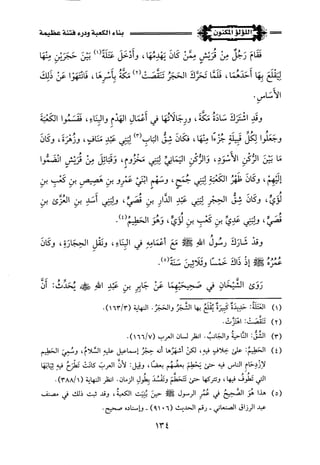 اللؤلؤ المكنون
بناء الكعبة ودرء فتنة عظيمة
فَقَامَ رَجُلٌ مِنْ قُرَيْشٍ مِمَّنْ كَانَ يَهْدِمُهَا، وَأَدْخَلَ عَتَلَةً(١) بَيْنَ حَجَرَيْنِ مِنْهَا
لِيَقْلَعَ بِهَا أَحَدَهُمَا، فَلَمَّا تَحَرَّكَ الحَجَرُ تَنَقَّضَتْ(٢) مَكَّةُ بِأَسْرِهَا، فَانْتَهَوْا عَنْ ذَلِكَ
الأَسَاسِ.
وَقَدِ اشْتَرَكَ سَادَةُ مَكَّةَ، وَرِجَالَاتُهَا فِي أَعْمَالِ الهَدْمِ وَالبِنَاءِ، فَقَسَمُوا الكَعْبَةَ
وَجَعَلُوا لِكُلِّ قَبِيلَةٍ جُزْءًا مِنْهَا، فَكَانَ شِقُّ البَابِ(٣) لِبَنِي عَبْدِ مَنَافٍ، وَزُهْرَةَ، وَكَانَ
مَا بَيْنَ الرُّكْنِ الأَسْوَدِ، وَالرُّكْنِ اليَمَانِيِّ لِبَنِي مَخْزُومٍ، وَقَبَائِلَ مِنْ قُرَيْشٍ انْضَمُّوا
إِلَيْهِمْ، وَكَانَ ظَهْرُ الكَعْبَةِ لِبَنِي جُمَحٍ، وَسَهْمٍ ابْنَيْ عَمْرِو بنِ هُصَيْصِ بنِ كَعْبِ بنِ
لُؤَيٍّ، وَكَانَ شِقُّ الحِجْرِ لِبَنِي عَبْدِ الدَّارِ بنِ قُصَيٍّ، وَلِبَنِي أَسَدِ بنِ العُزَّى بنِ
قُصَيٍّ، وَلِبَنِي عَدِيِّ بنِ كَعْبِ بنِ لُؤَيٍّ، وَهُوَ الحَطِيمُ(٤).
وَقَدْ شَارَكَ رَسُولُ اللهِ ﷺ مَعَ أَعْمَامِهِ فِي البِنَاءِ، وَنَقْلِ الحِجَارَةِ، وَكَانَ
عُمُرُهُ ﷺ إِذْ ذَاكَ خَمْسًا وَثَلَاثِينَ سَنَةً(٥).
رَوَى الشَّيْخَانِ فِي صَحِيحَيْهِمَا عَنْ جَابِرِ بنِ عَبْدِ اللهِ ﷺ يُحَدِّثُ: أَنَّ
(١) العَتَلَةُ: حَدِيدَةٌ كَبِيرَةٌ يُقْلَعُ بها الشَّجَرُ والحَجَرُ. النهاية (١٦٣/٣).
(٢) تَنَقَّضَتْ: اهْتَزَّتْ.
(٣) الشِّقُّ: النَّاحِيةُ والجَانِبُ. انظر لسان العرب (١٦٦/٧).
(٤) الحَطِيمُ: على خِلافٍ فيهِ، لكنْ أشهرُها أنه حِجْرُ إسماعيل عليهِ السَّلامُ، وسُمِّيَ الحَطِيم
لازْدِحَامِ الناس فيه حتى يَحْطِمَ بعضُهُم بعضًا، وقيل: لأنَّ العربَ كانَتْ تَطْرَحُ فيه ثِيَابَهَا
التي تَطُوفُ فيها، وتتركها حتى تَتَحَطَّمَ وتَفْسُدَ بِطُولِ الزمان. انظر النهاية (٣٨٨/١).
(٥) هذا هُوَ الصَّحِيحُ في عُمُرِ الرسول ﷺ حين بُنِيَت الكعبةُ، وقد ثبت ذلك في مصنف
عبد الرزاق الصنعاني - رقم الحديث (٩١٠٦) - وإسناده صحيح.
١٣٤